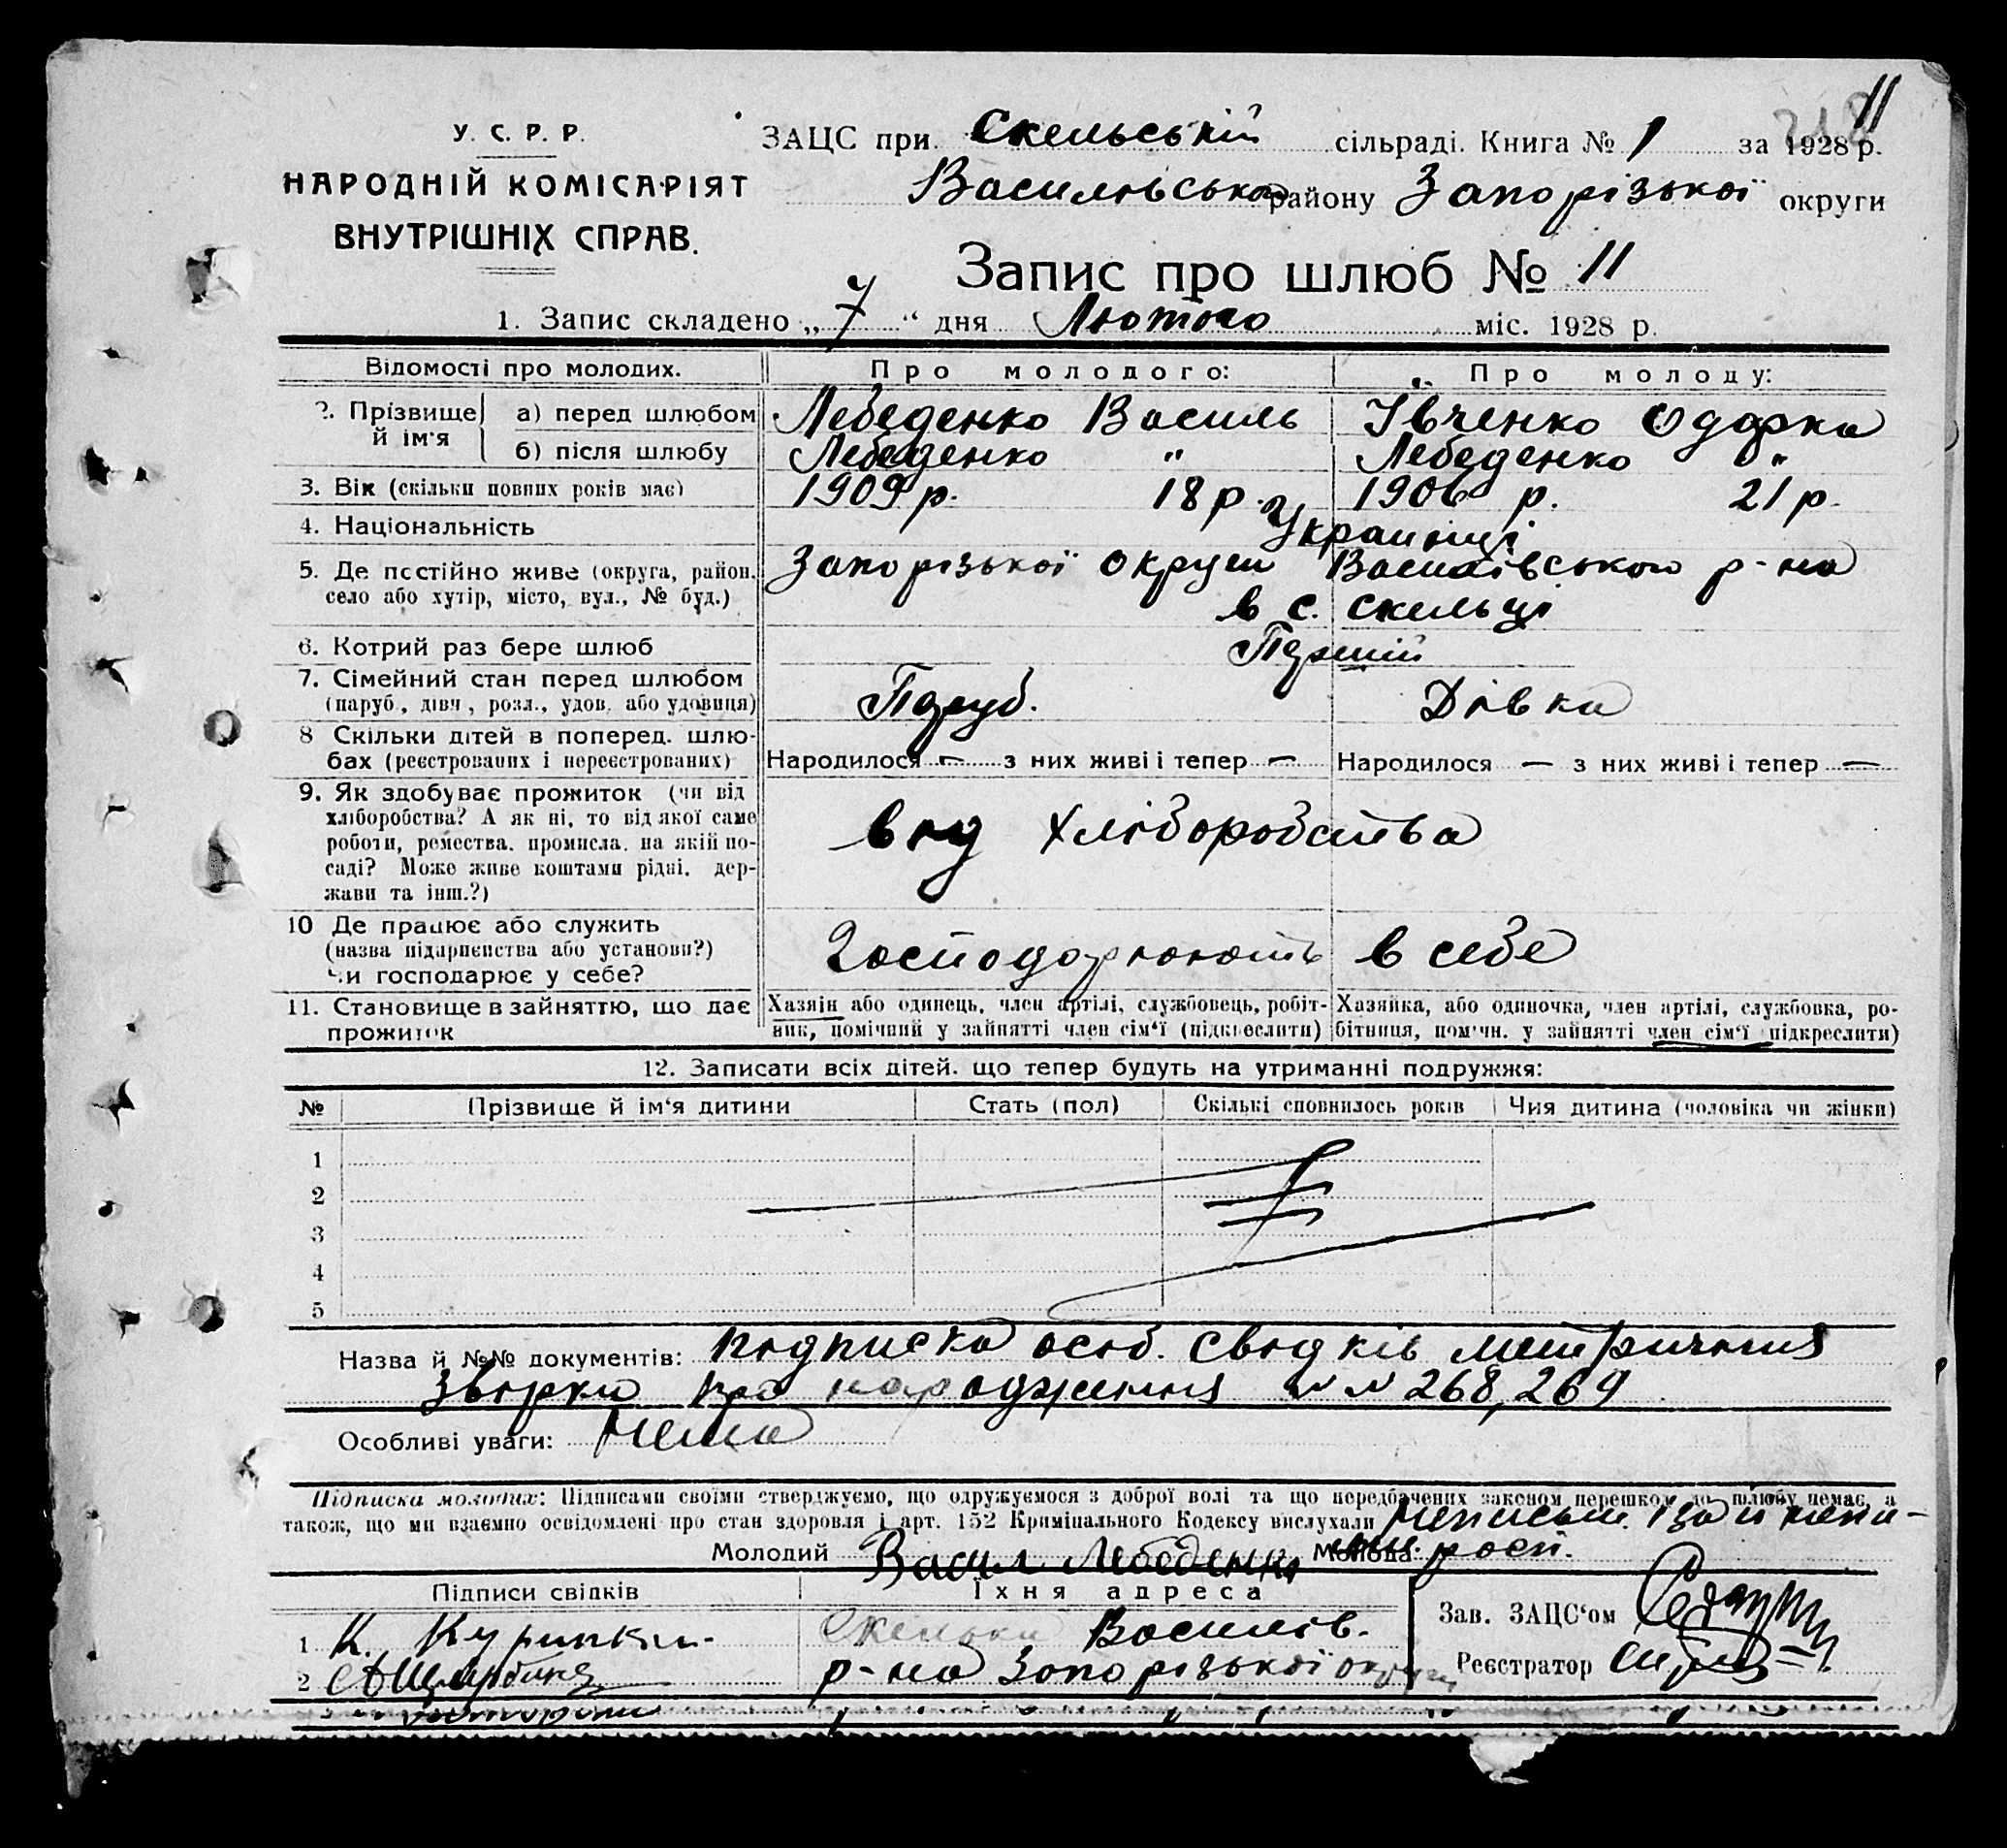 11
У. С. Р. Р.
НАРОДНІЙ КОМІСАРІЯТ
ВНУТРІШНІХ СПРАВ.
ЗАЦС при Скельській сільраді. Книга № 1 за 1928 р.
Василівського району Запорізької округи
Запис про шлюб № 11
1. Запис складено „ 7 “ дня Лютого міс. 1928 р.
Відомості про молодих. Про молодого: Про молоду:
2. Прізвище й ім'я а) перед шлюбом Лебеденко Василь Івченко Одарка
б) після шлюбу Лебеденко " Лебеденко "
3. Вік (скільки повних років має) 1909 р. 18 р. 1906 р. 21 р.
4. Національність Украинці
5. Де постійно живе (округа, район, Запорізької округи Василівського р-на
село або хутір, місто, вул., № буд.) в с. Скельці
6. Котрий раз бере шлюб Перший
7. Сімейний стан перед шлюбом
(паруб., дівч., розл., удов. або удовиця) Паруб. Дівка
8 Скільки дітей в поперед. шлю-
бах (реєстрованих і нереєстрованих) Народилося — з них живі і тепер — Народилося — з них живі і тепер —
9. Як здобуває прожиток (чи від
хліборобства? А як ні, то від якої саме
роботи, ремества, промисла, на якій по-
саді? Може живе коштами рідні, дер-
жави та інш.?) від хліборобства
10 Де працює або служить
(назва підприємства або установи?)
Чи господарює у себе? Господорюють в себе
11. Становище в зайняттю, що дає Хазяін або одинець, член артілі, службовець, робіт- Хазяйка, або одиночка, член артілі, службовка, ро-
прожиток ник, помічний у зайнятті член сім'ї (підкреслити) бітниця, помічн. у зайнятті член сім'ї підкреслити)
12. Записати всіх дітей, що тепер будуть на утриманні подружжя:
№ Прізвище й ім'я дитини Стать (пол) Скількі сповнилось років Чия дитина (чоловіка чи жінки)
1
2
3
4
5
Назва й №№ документів: підписка особ. свідків метричния
звірка про народження N N 268, 269
Особливі уваги: Нема
Підписка молодих: Підписами своїми стверджуємо, що одружуємося з доброї волі та що передбачених законом перешкод до шлюбу немає, а
також, що ми взаємно освідомлені про стан здоровля і арт. 152 Кримінального Кодексу вислухали
Молодий Васил Лебеденко Молода
Підписи свідків Їхня адреса
Зав. ЗАЦС'ом
1 К. Василів.
2 р-на Запорізької округи Реєстратор